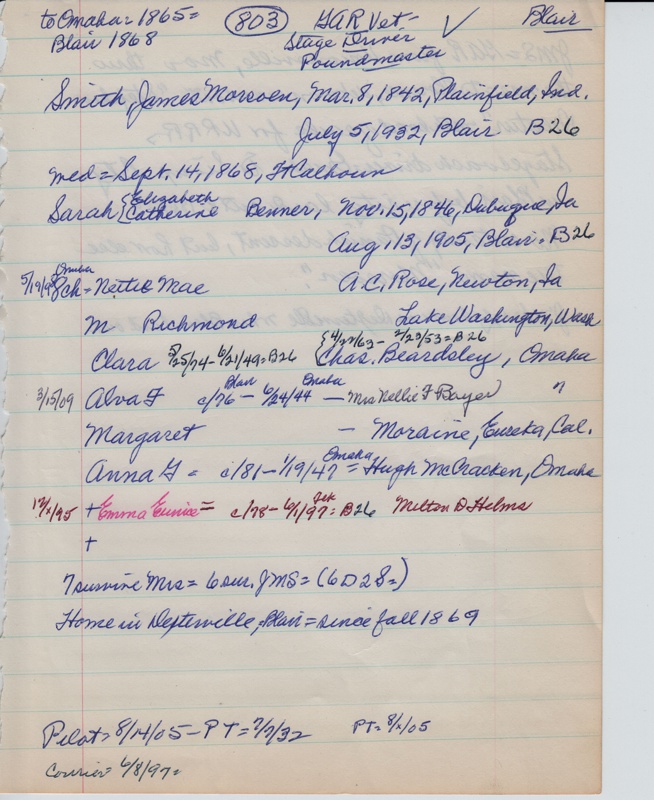 to Omaha = 1865 =
Blair 1868
803
GAR Vet -
Stage Driver
Poundmaster
✓
Blair
Smith, James Morven, Mar. 8, 1842, Plainfield, Ind.
July 5, 1932, Blair B26
med = Sept. 14, 1868, Ft Calhoun
Sarah { Elizabeth Catherine Benner, Nov. 15, 1846, Dubuque, Ia
Aug. 13, 1905, Blair = B26
Omaha
8ch = Nettie Mae A.C. Rose, Newton, Ia
M Richmond Lake Washington, Wash
4/27/63 - 2/23/53 = B26
Clara 5/25/74 - 6/21/49 = B26 { Chas. Beardsley, Omaha
Blair Omaha
3/15/09 Alva F c/76 - 6/24/44 - Mrs Nellie F Boyer "
Margaret - Moraine, Eureka, Cal.
Omaha
Anna G = c/81 - 1/19/47 = Hugh McCracken, Omaha
12/x/95 + Emma Eunice = c/78 - 6/1/97 = B26 Milton D Helms
+
7 survive Mrs = 6 sur. JMS = (6D 2S =)
Home in Dexterville, Blair = since fall 1869
Pilot = 8/14/05 - PT = 7/7/32 PT = 8/x/05
Courier = 6/8/97 =